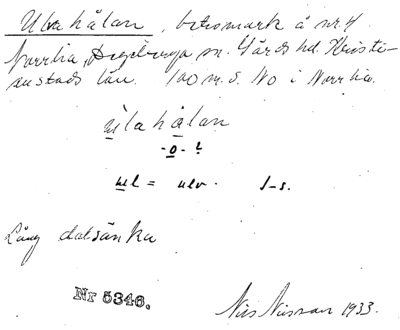 Ulvahålan, betesmark å nr 4
Norrlia, Degeberga sn. Gärds hd. Kristi-
anstads län. 100 m. S. No 1 Norrlia.
ùlahålan
-o- l
ul = ulv. 1-s.
Lång dalsänka
Nr 5346.
Nils Nilsson 1933.